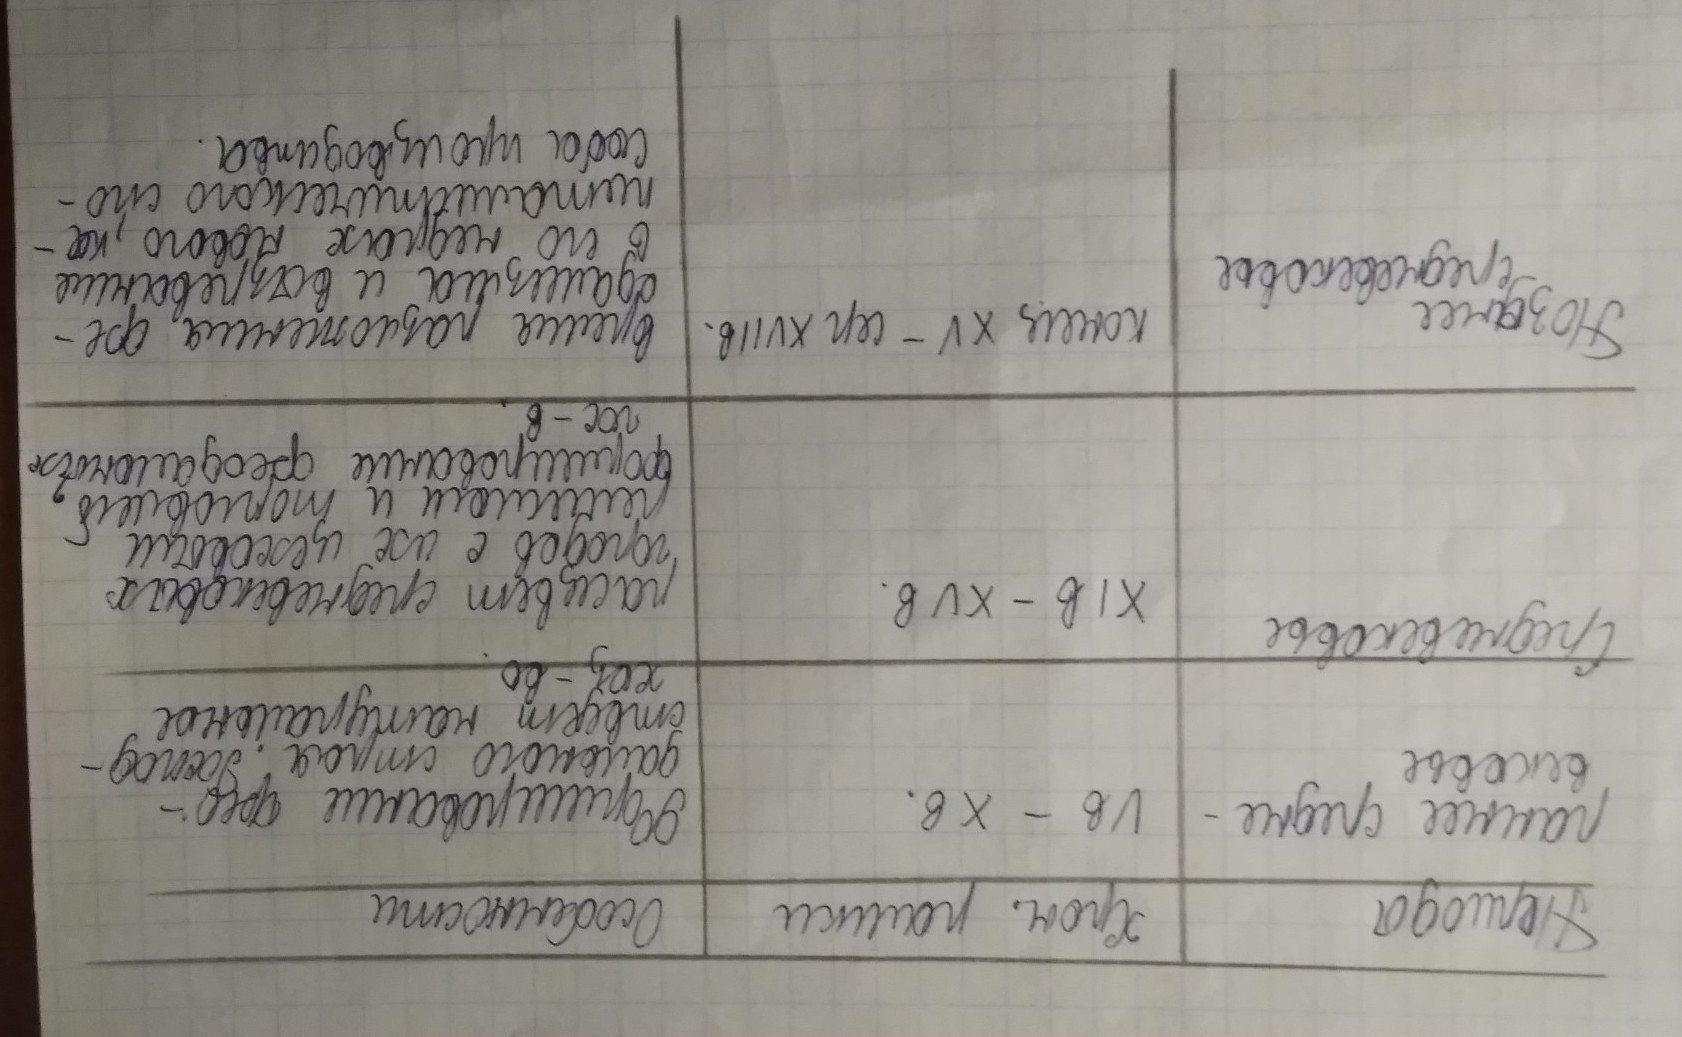 Периода
Хрон. рамки
Особенности
раннее средне-
вековье
V в - X в.
Формирование фео-
дального строя. Господ-
ствует натуральное
хоз-во.
Средневековье
XI в - XV в.
расцвет средневековых
городов с их цеховым
ремеслом и торговлей,
формирование феодальных
гос-в.
Позднее
средневековье
конец XV - сер XVII в.
время разложения фе-
одализма и вызревание
в его недрах нового, ка-
питалистического спо-
соба производства.